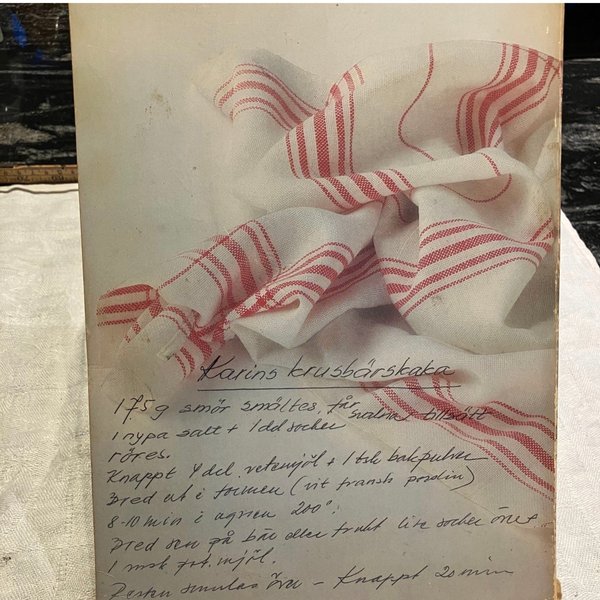 Karins krusbärskaka
175g smör smältes, får svalna tillsätt
1 nypa salt + 1 dl socker
röres.
Knappt 4 del vetemjöl + 1 tsk bakpulver
Bred ut i formen (vit fransk porslin)
8-10 min i ugnen 200°.
Bred sen på bär eller frukt lite socker över.
1 msk pot.mjöl.
Resten smulas över – Knappt 20 min